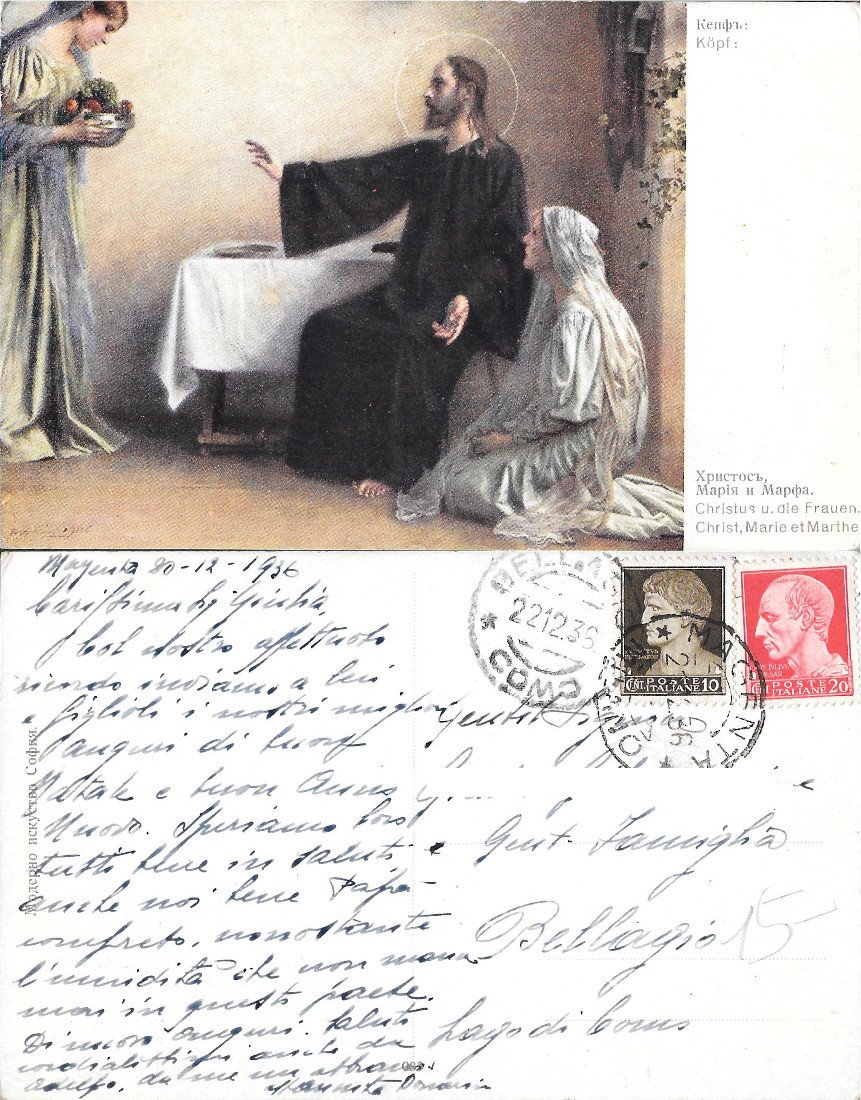 Кепфъ:
Köpf:
Христосъ,
Марія и Марфа.
Christus u. die Frauen.
Christ, Marie et Marthe
Magenta 20-12-1936
Carissima Sig Giulia,
Col nostro affettuoso
ricordo inviamo a lei
e figlioli i nostri migliori
auguri di buon
Natale e buon Anno
Nuovo. Speriamo loro
tutti bene in salute e
anche noi bene Papà
compreto, nonostante
l'umidità che non manca
mai in questi paese.
Di nuovo auguri, saluti
cordialissimi anche da
Adolfo, da me un abbraccio
Модерно искуство София.
BELLAGIO
22.12.36
* COMO
* MAGENTA *
POSTE ITALIANE
CENT 10
IULIUS
POSTE ITALIANE
CENT 20
Gentil Signora
e
Gent. Famiglia
Bellagio
15
Lago di Como